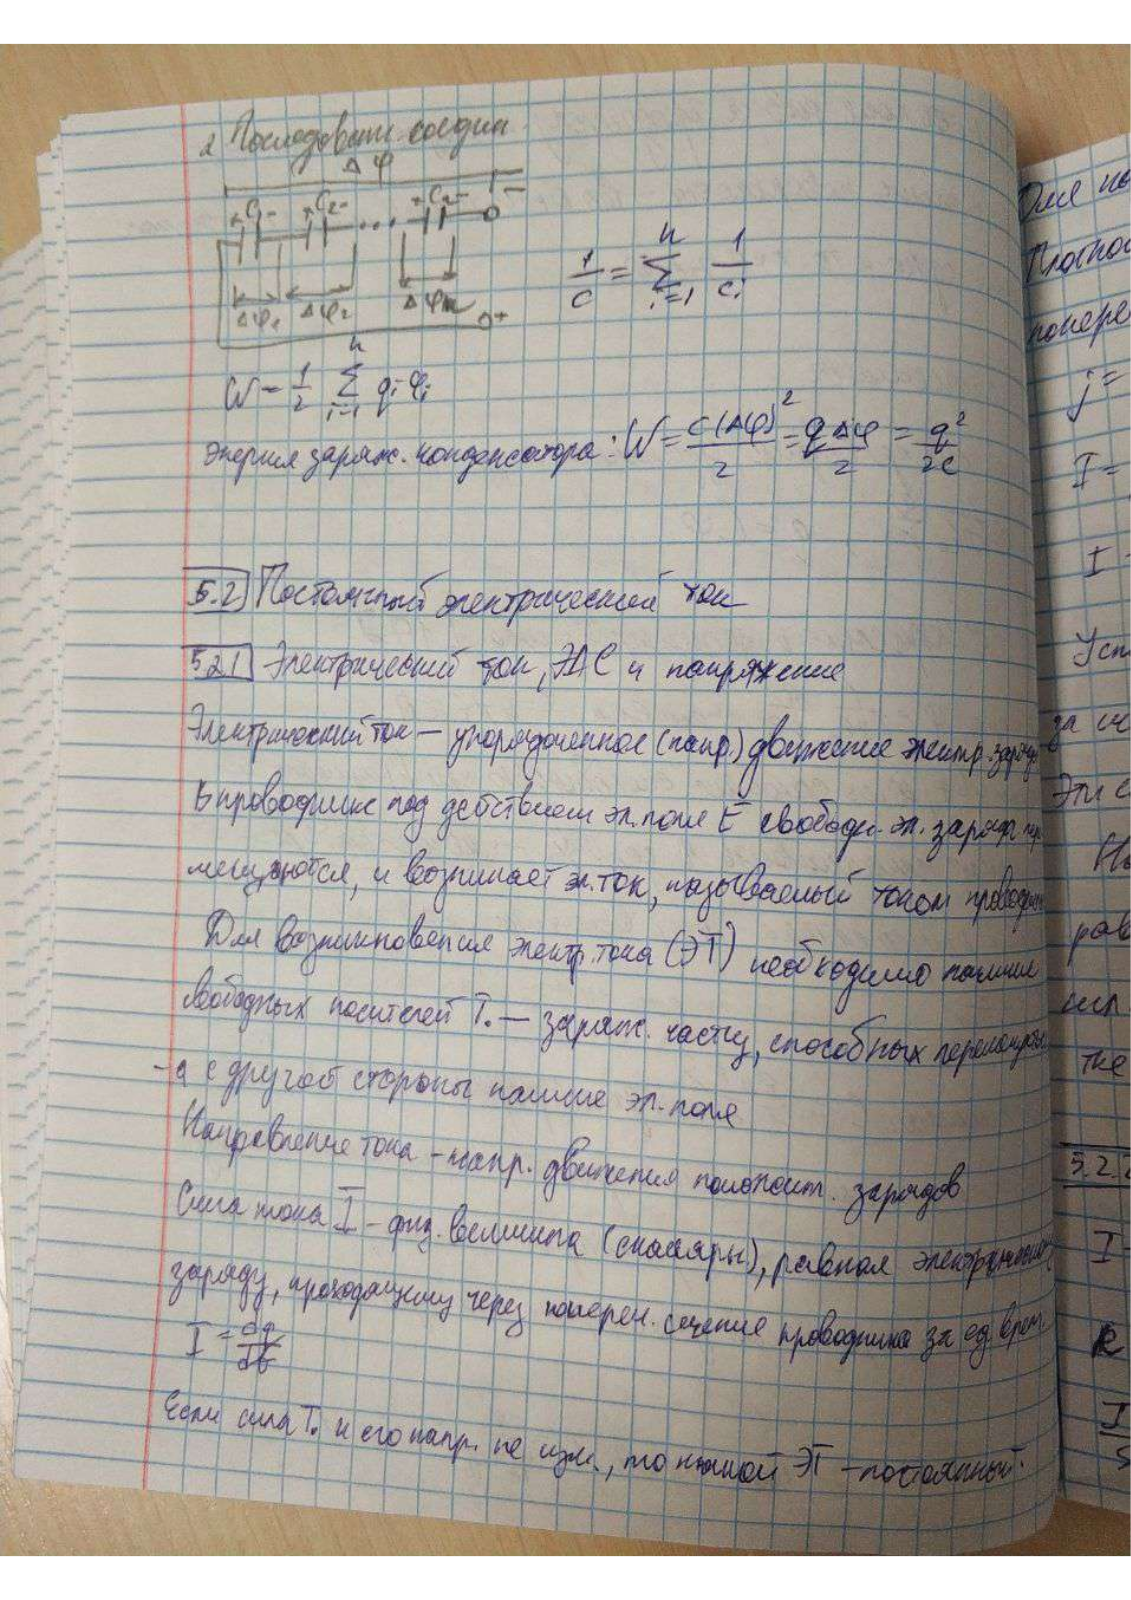 2 Последоват. соедин
Δφ
+C₁- +C₂- ... +Cₙ- -
Δφ₁ Δφ₂ Δφₙ +
1/C = Σ(i=1, n) 1/Cᵢ
W = 1/2 Σ(i=1, n) qᵢ φᵢ
Энергия заряж. конденсатора: W = C(Δφ)²/2 = qΔφ/2 = q²/2C
5.2 Постоянный электрический ток
5.2.1 Электрический ток, ЭДС и напряжение
Электрический ток — упорядоченное (напр.) движение электр. заряд
В проводнике под действием эл. поля E свободн. эл. заряды пер
мещаются, и возникает эл. ток, называемый током проводим
Для возникновения электр. тока (ЭТ) необходимо наличие
свободных носителей Т. — заряж. частиц, способных перемещаться
- а с другой стороны наличие эл. поля
Направление тока - напр. движения положит. зарядов
Сила тока I - физ. величина (скаляры), равная электрическому
заряду, проходящему через попереч. сечение проводника за ед. врем.
I = dq/dt
Если сила Т. и его напр. не изм., то такой ЭТ - постоянный.
Для
Плотнос
попере
j =
I =
I
Уст
за
Эти с
рав
тке
5.2.2
I
R
I
S